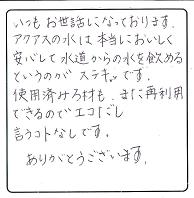 いつもお世話になっております。
アクアスの水は本当においしく
安心して水道からの水を飲める
というのが ステキです。
使用済みろ材も、また再利用
できるのでエコだし
言うコトなしです。
ありがとうございます。